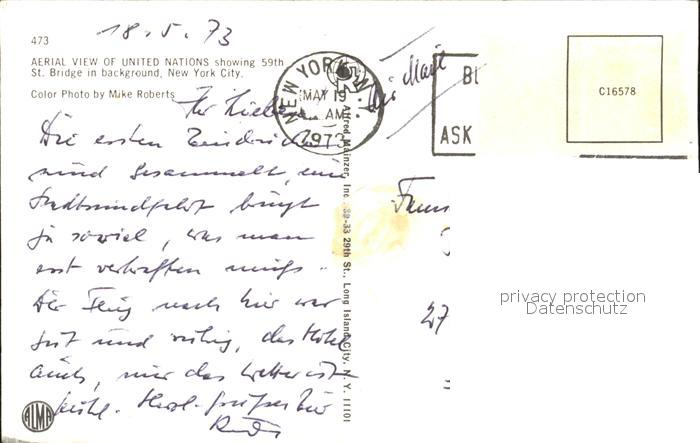 18.5.73
473
AERIAL VIEW OF UNITED NATIONS showing 59th
St. Bridge in background, New York City.
Color Photo by Mike Roberts
NEW YORK, N.Y.
MAY 19
AM
1973
BU
ASK
C16578
Air Mail
Alfred Mainzer, Inc. 39-33 29th St., Long Island City, N. Y. 11101
Ihr Lieben
Die ersten Eindrücke
sind gesammelt, eine
Stadtrundfahrt bringt
ja soviel, was man
erst verkraften muß.
Der Flug nach hier war
gut und ruhig, das Hotel
auch, nur das Wetter ist
kühl. Herzl. grüßen Sie
Fam
27
privacy protection
Datenschutz
ALMA